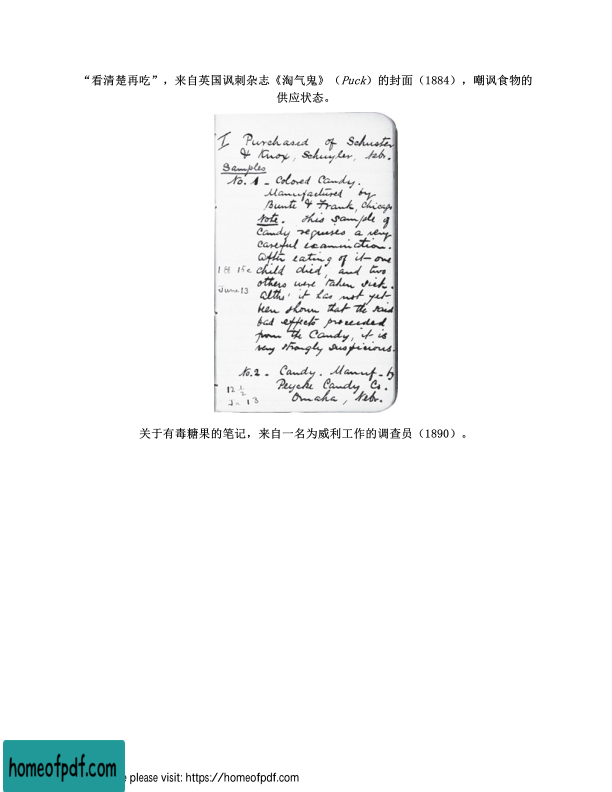 “看清楚再吃”，来自英国讽刺杂志《淘气鬼》（Puck）的封面（1884），嘲讽食物的
供应状态。
I Purchased of Schuster
& Knox, Schuyler, Nebr.
Samples
No. 1 - Colored Candy.
Manufactured by
Bunte & Frank, Chicago
Note. This sample of
Candy requires a very
careful examination.
After eating of it one
1 lb 15c child died, and two
June 13 others were taken sick.
Altho' it has not yet
been shown that the said
bad effects proceeded
from the Candy, it is
very strongly suspicious.
No. 2 - Candy. Manuf- by
12 1/2 Peycke Candy Co.
Ju 13 Omaha, Nebr.
关于有毒糖果的笔记，来自一名为威利工作的调查员（1890）。
homeofpdf.com
e please visit: https://homeofpdf.com